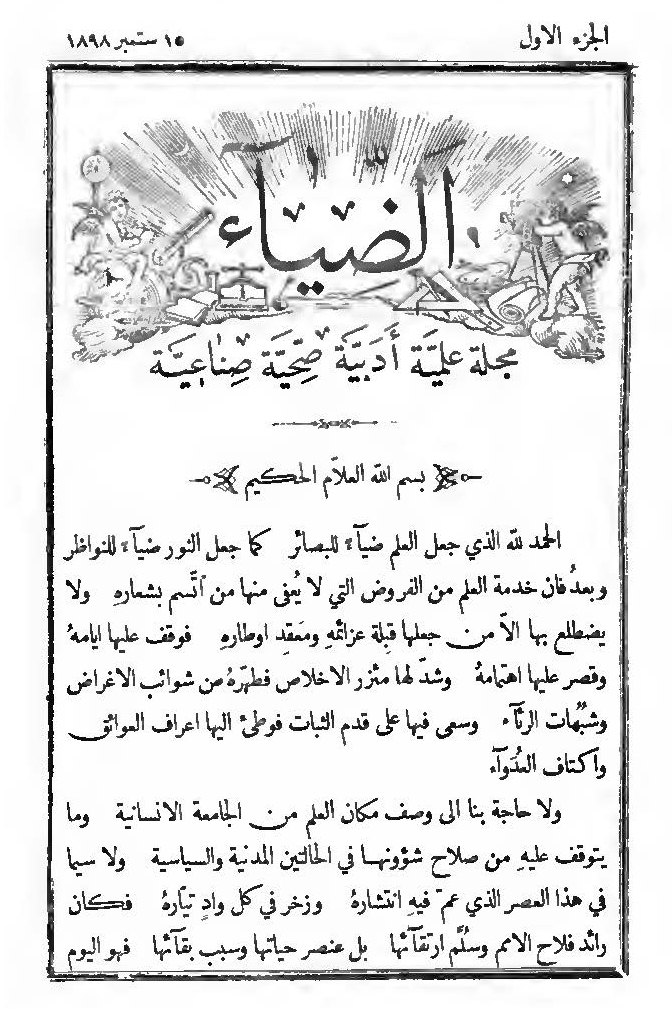 الجزء الاول
١٥ ستمبر ١٨٩٨
الضيآء
مجلة علميَّة أَدَبيَّة صِحِّيَّة صِنَاعِيَّة
بسم الله العلاّم الحكيم
الحمد لله الذي جعل العلم ضيآءً للبصائر كما جعل النور ضيآءً للنواظر
وبعدُ فان خدمة العلم من الفروض التي لا يُعفى منها من ٱتَّسم بشعارهِ ولا
يضطلع بها الاّ من جعلها قبلة عزائمهِ ومَعقِد اوطارهِ فوقف عليها ايامهُ
وقصر عليها اهتمامهُ وشدّ لها مئزر الاخلاص فطهّرهُ من شوائب الاغراض
وشُبُهات الرئآء وسعى فيها على قدم الثبات فوطئ اليها اعراف العوائق
واكتاف العُدَوآء
ولا حاجة بنا الى وصف مكان العلم من الجامعة الانسانية وما
يتوقف عليهِ من صلاح شؤونهـا في الحالتين المدنية والسياسية ولا سيما
في هذا العصر الذي عمّ فيهِ انتشارهُ وزخر في كل وادٍ تيّارهُ فكان
رائد فلاح الامم وسُلَّم ارتقآئها بل عنصر حياتها وسبب بقآئها فهو اليوم